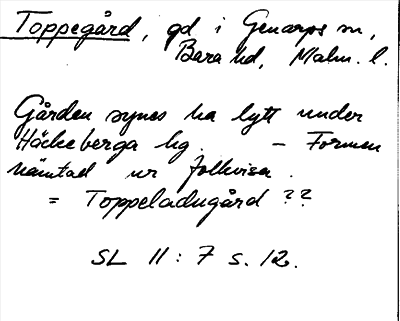 Toppegård, gd i Genarps sn,
Bara hd, Malm. l.
Gården synes ha lytt under
Häckeberga hg. – Formen
hämtad ur folkvisa.
= Toppeladugård ??
SL 11:7 s. 12.